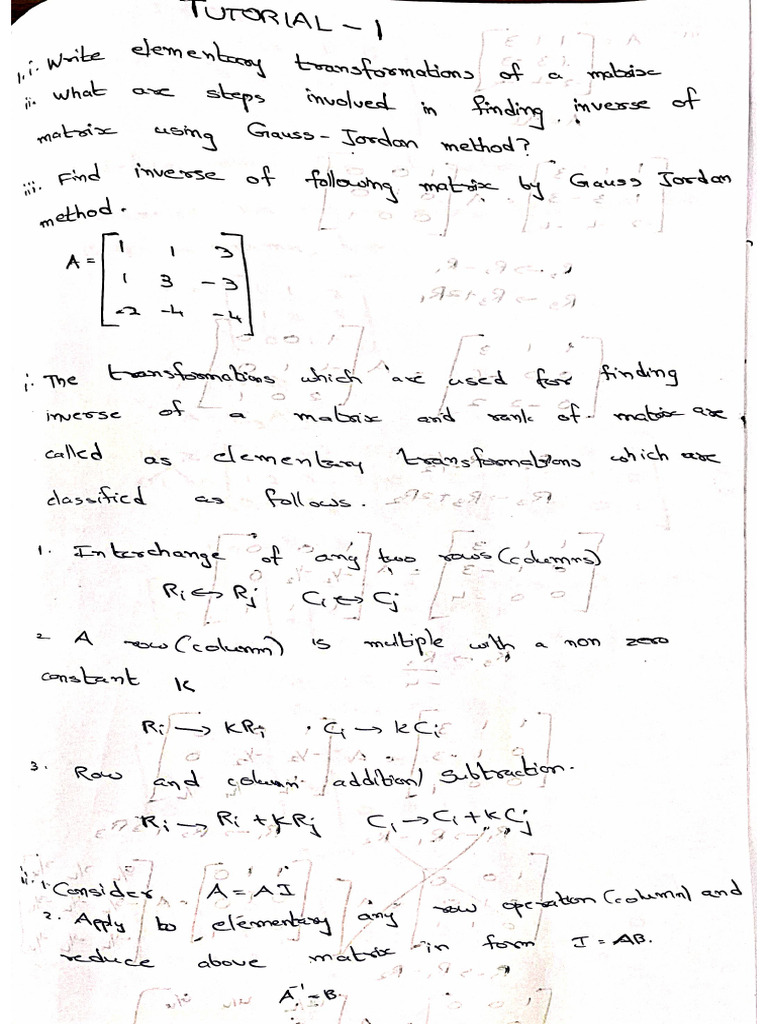 TUTORIAL - 1
1. i. Write elementary transformations of a matrix
ii. What are steps involved in finding inverse of
matrix using Gauss-Jordan method?
iii. Find inverse of following matrix by Gauss Jordan
method.
A = [1 1 3
1 3 -3
-2 -4 -4]
i. The transformations which are used for finding
inverse of a matrix and rank of matrix are
called as elementary transformations which are
classified as follows.
1. Interchange of any two rows (columns)
Ri ↔ Rj Ci ↔ Cj
2 A row (column) is multiple with a non zero
constant K
Ri → KRi Ci → KCi
3. Row and column addition/subtraction.
Ri → Ri + KRj Ci → Ci + KCj
ii. 1. Consider A = AI
2. Apply to elementary any row operation (column) and
reduce above matrix in form I = AB.
A⁻¹ = B.